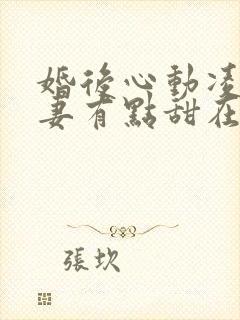 婚後心動凌
妻有點甜在
張坎